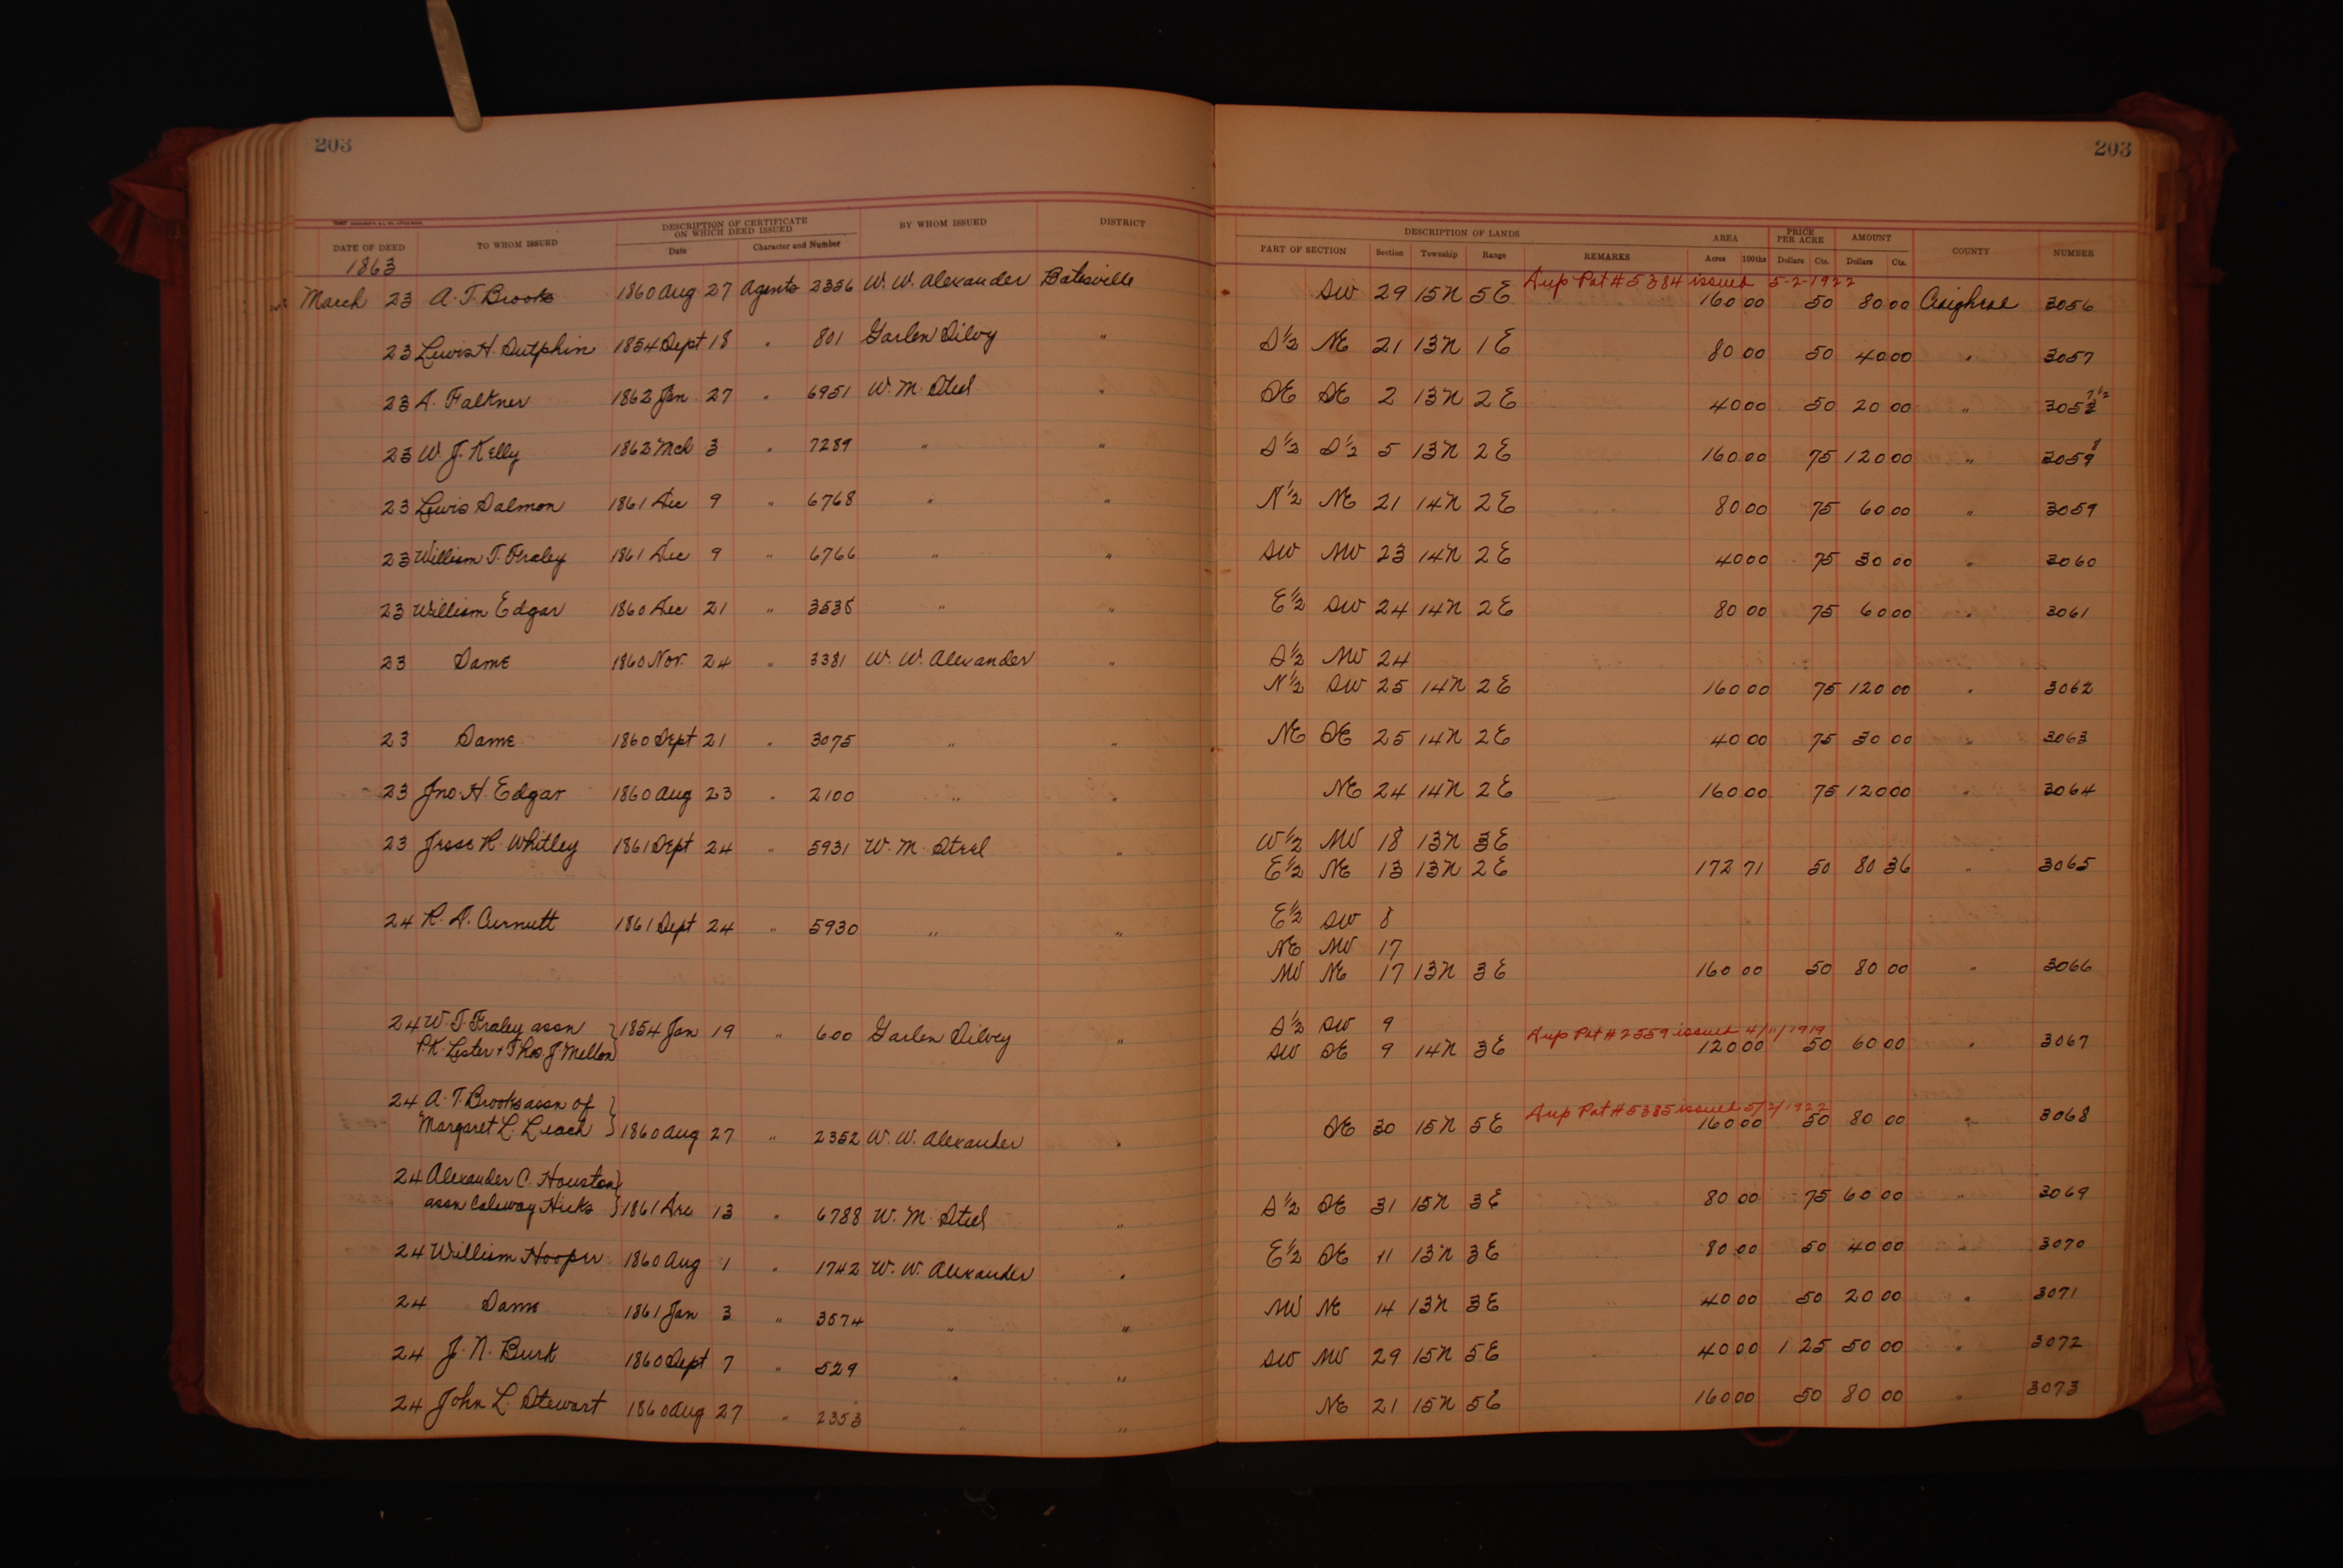 203 203
DATE OF DEED TO WHOM ISSUED DESCRIPTION OF CERTIFICATE ON WHICH DEED ISSUED BY WHOM ISSUED DISTRICT DESCRIPTION OF LANDS AREA PRICE PER ACRE AMOUNT COUNTY NUMBER
Date Character and Number PART OF SECTION Section Township Range REMARKS Acres 100ths Dollars Cts. Dollars Cts.
1863
Dup Pat # 5384 issued 5-2-1922
March 23 A. T. Brooks 1860 Aug 27 Agents 2356 W. W. Alexander Batesville SW 29 15N 5E 160 00 50 80 00 Craighead 3056
23 Lewis H. Sutphin 1854 Sept 18 " 801 Garlen Silvy " S½ NE 21 13N 1E 80 00 50 40 00 " 3057
23 A. Falkner 1862 Jan 27 " 6951 W. M. Steel " SE SE 2 13N 2E 40 00 50 20 00 " 305 7½
23 W. J. Kelly 1862 Mch 3 " 7289 " " S½ S½ 5 13N 2E 160 00 75 120 00 " 3059 8
23 Lewis Salmon 1861 Dec 9 " 6768 " " N½ NE 21 14N 2E 80 00 75 60 00 " 3059
23 William T. Fraley 1861 Dec 9 " 6766 " " SW NW 23 14N 2E 40 00 75 30 00 " 3060
23 William Edgar 1860 Dec 21 " 3535 " " E½ SW 24 14N 2E 80 00 75 60 00 " 3061
23 Same 1860 Nov. 24 " 3381 W. W. Alexander " S½ NW 24
N½ SW 25 14N 2E 160 00 75 120 00 " 3062
23 Same 1860 Sept 21 " 3075 " " NE SE 25 14N 2E 40 00 75 30 00 " 3063
23 Jno. H. Edgar 1860 Aug 23 " 2100 " " NE 24 14N 2E 160 00 75 120 00 " 3064
23 Jesse R. Whitley 1861 Sept 24 " 5931 W. M. Steel " W½ NW 18 13N 3E
E½ NE 13 13N 2E 172 71 50 80 36 " 3065
24 R. A. Curnutt 1861 Sept 24 " 5930 " " E½ SW 8
NE NW 17
NW NE 17 13N 3E 160 00 50 80 00 " 3066
24 W. T. Fraley assn 1854 Jan 19 " 600 Garlen Silvey " S½ SW 9
Dup Pat # 2559 issued 4/11/1919
P. K. Lester + Thos. J Mellon SW SE 9 14N 3E 120 00 50 60 00 " 3067
24 A. T. Brooks assn of
Dup Pat # 5385 issued 5/2/1922
Margaret L. Leach 1860 Aug 27 " 2352 W. W. Alexander " SE 30 15N 5E 160 00 50 80 00 " 3068
24 Alexander C. Houston
assn Caloway Hicks 1861 Dec 13 " 6788 W. M. Steel " S½ SE 31 15N 3E 80 00 75 60 00 " 3069
24 William Hooper 1860 Aug 1 " 1742 W. W. Alexander " E½ SE 11 13N 3E 80 00 50 40 00 " 3070
24 Same 1861 Jan 3 " 3574 " " NW NE 14 13N 3E 40 00 50 20 00 " 3071
24 J. N. Burk 1860 Sept 7 " 529 " " SW NW 29 15N 5E 40 00 1 25 50 00 " 3072
24 John L. Stewart 1860 Aug 27 " 2353 " " NE 21 15N 5E 160 00 50 80 00 " 3073